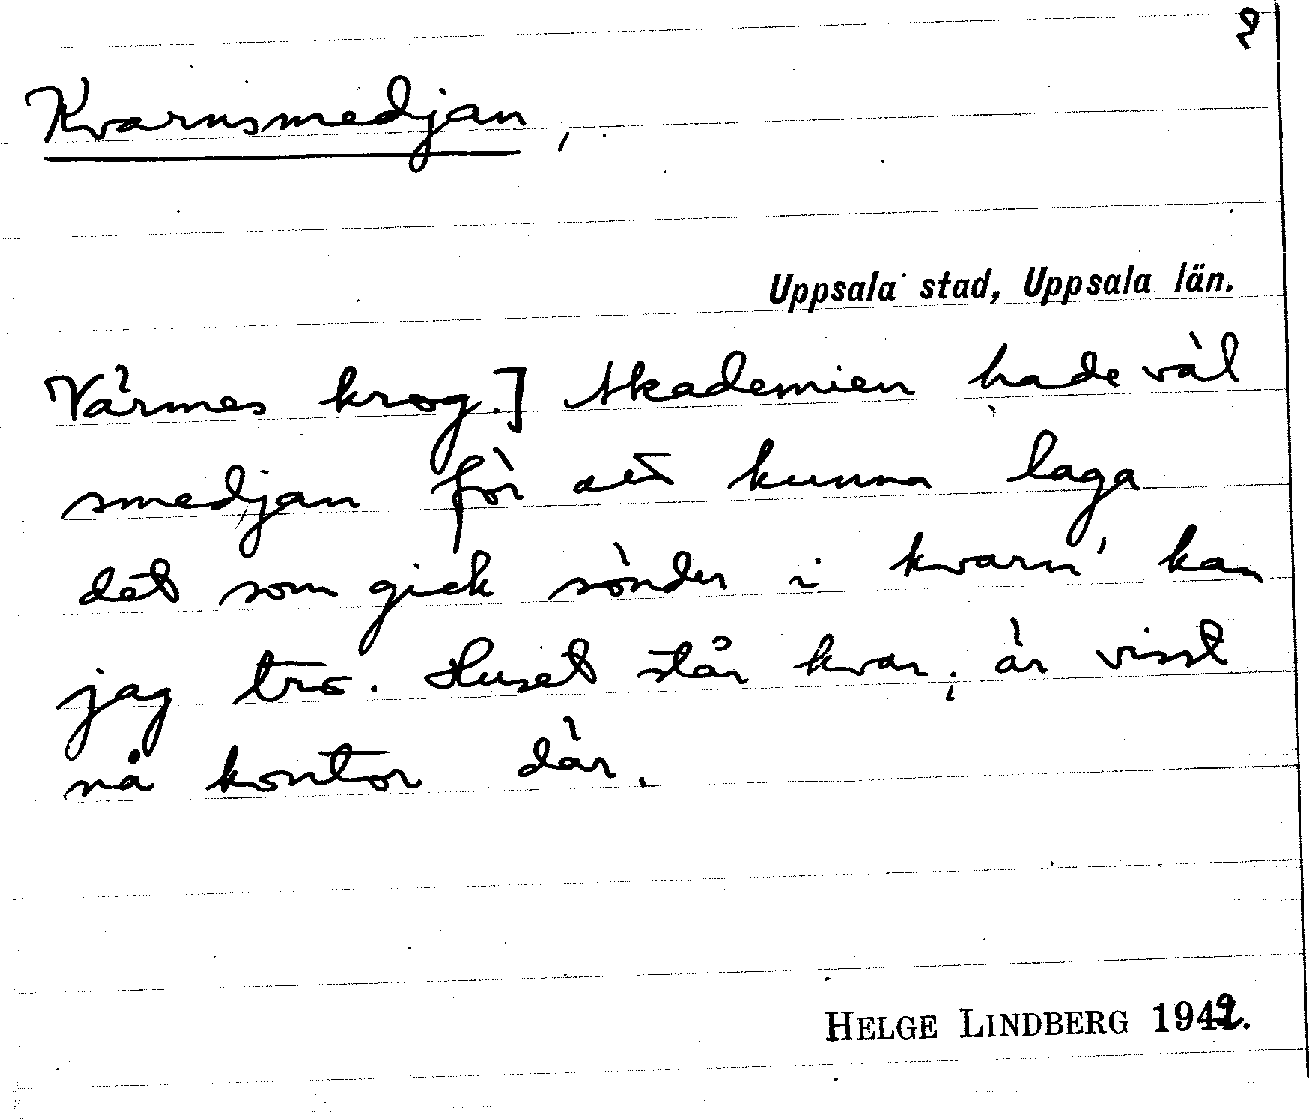 2
Kvarnsmedjan,
Uppsala stad, Uppsala län.
Värmes krog.] Akademien hade väl
smedjan för att kunna laga
det som gick sönder i kvarn' kan
jag tro. Huset står kvar, är visst
nå kontor där.
HELGE LINDBERG 1942.